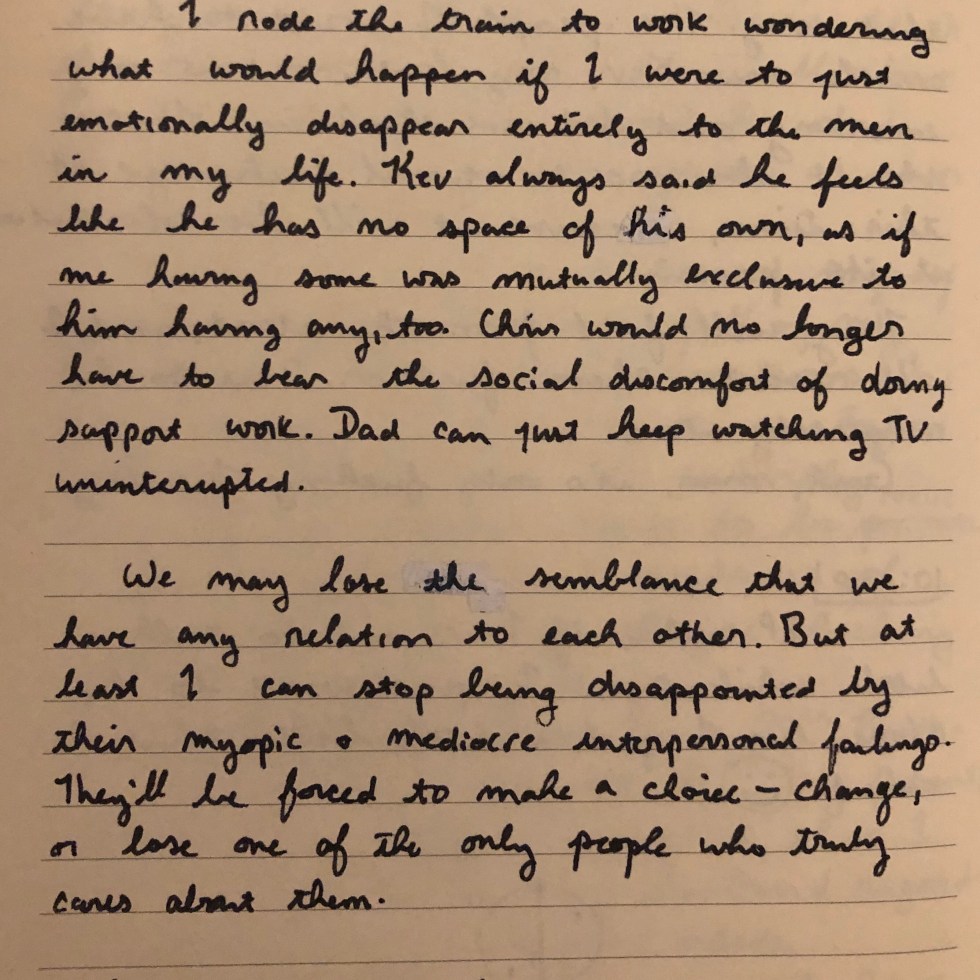 I rode the train to work wondering
what would happen if I were to just
emotionally disappear entirely to the men
in my life. Kev always said he feels
like he has no space of his own, as if
me having some was mutually exclusive to
him having any, too. Chris would no longer
have to bear the social discomfort of doing
support work. Dad can just keep watching TV
uninterupted.
We may lose the semblance that we
have any relation to each other. But at
least I can stop being disappointed by
their myopic + mediocre interpersonal failings.
They'll be forced to make a choice - change,
or lose one of the only people who truly
cares about them.